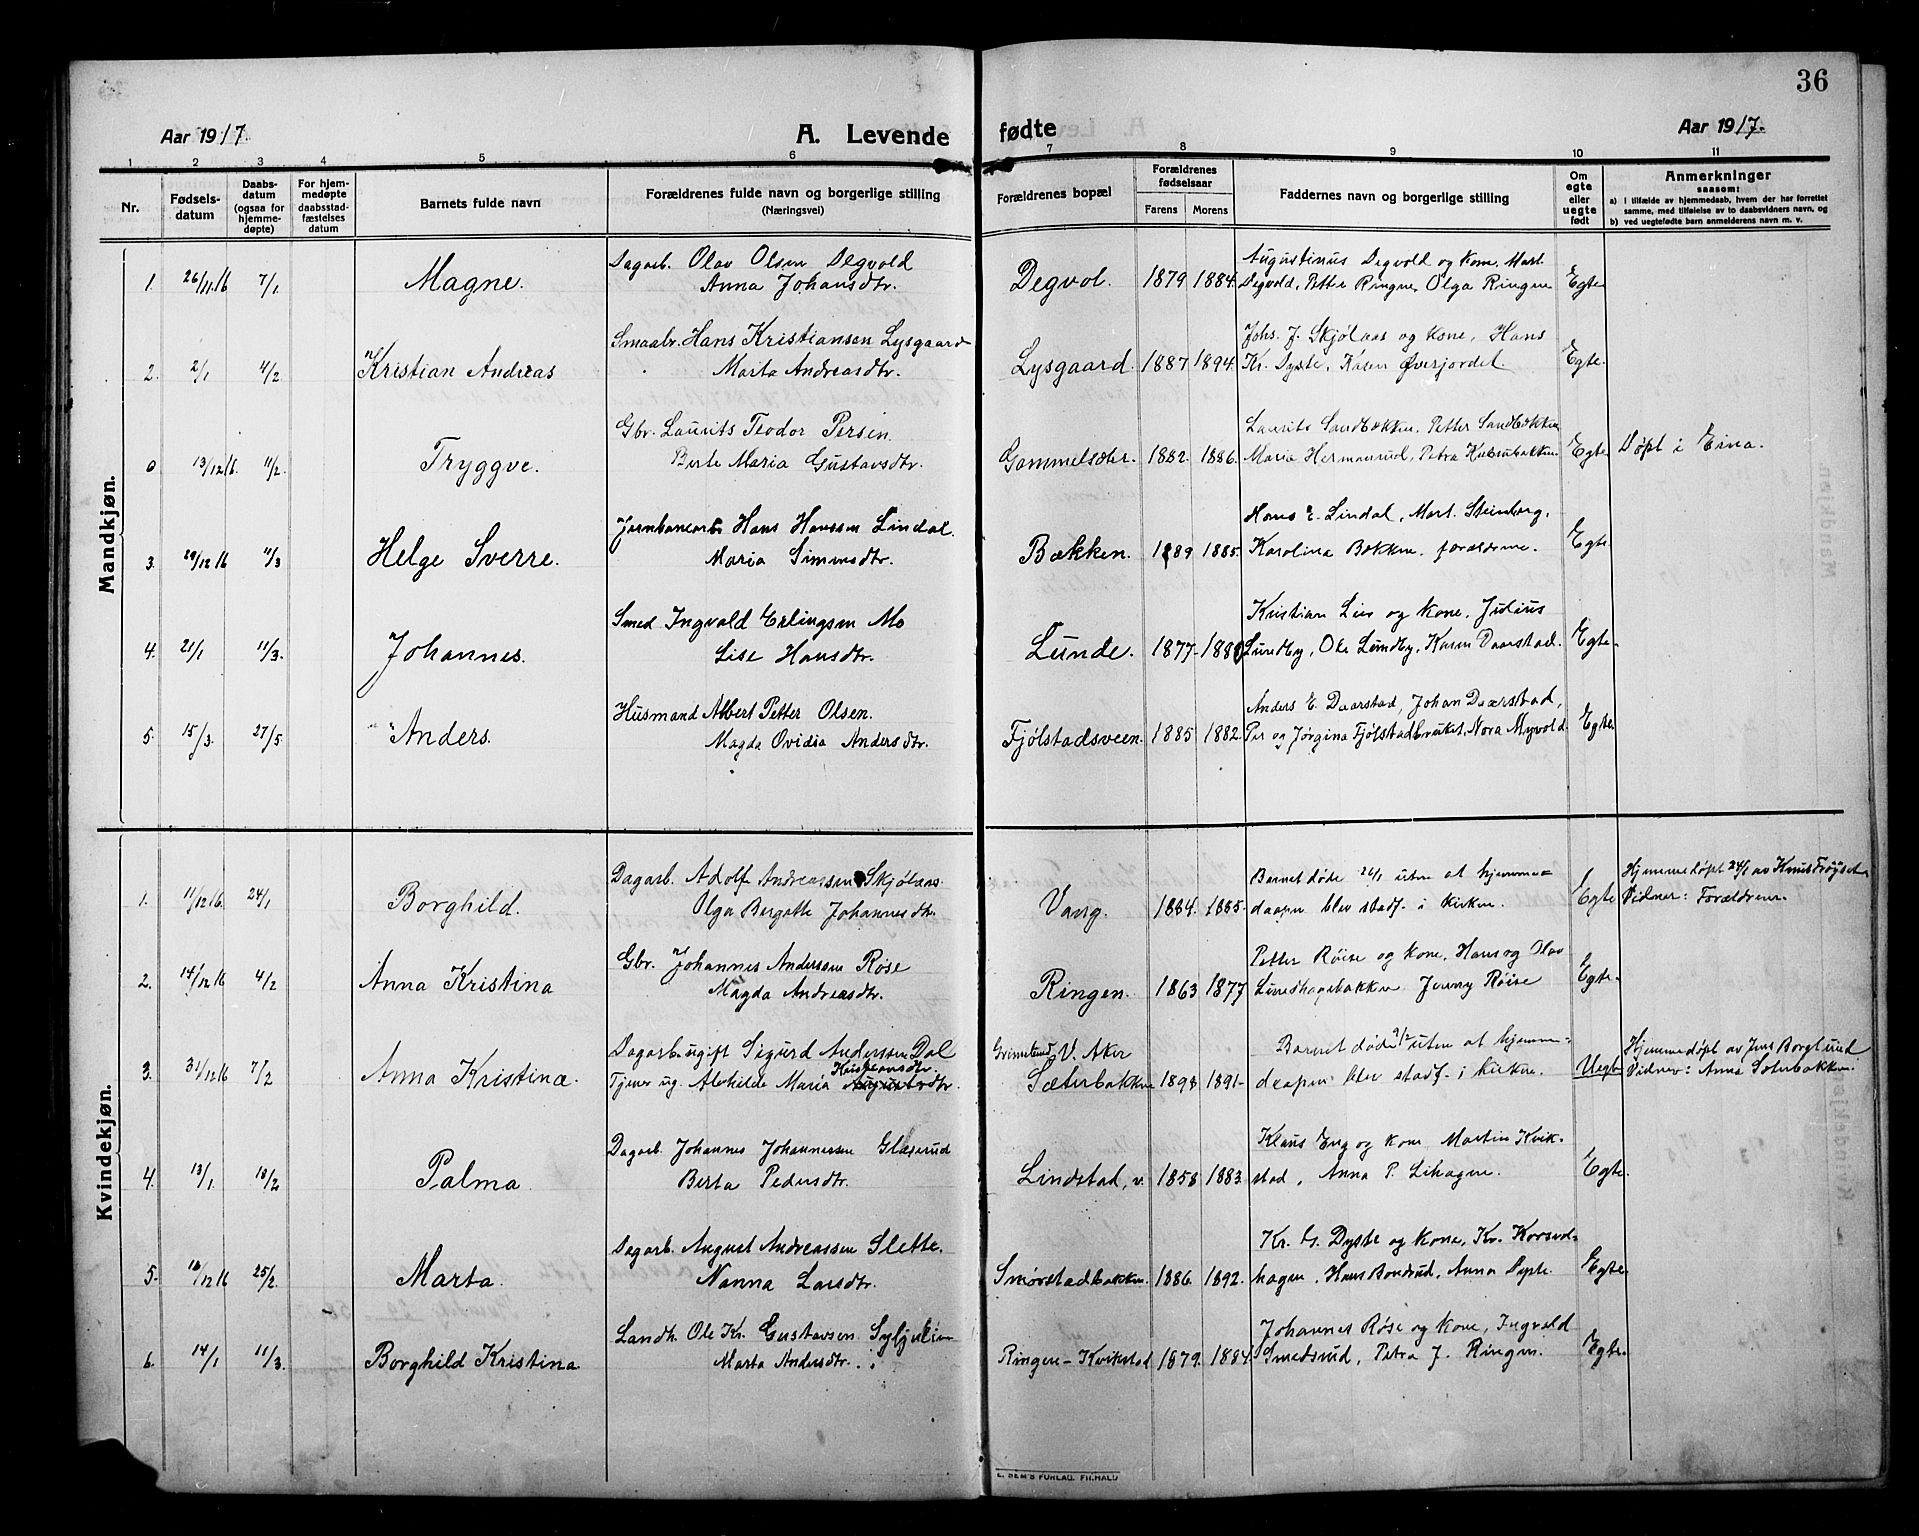 36
Aar 1917.
A. Levende fødte
Aar 1917.
1 2 3 4 5 6 7 8 9 10 11
Nr.
Fødsels-
datum
Daabs-
datum
(ogsaa for
hjemme-
døpte)
For hjem-
medøpte
daabsstad-
fæstelses
datum
Barnets fulde navn
Forældrenes fulde navn og borgerlige stilling
(Næringsvei)
Forældrenes bopæl
Forældrenes
fødselsaar
Farens Morens
Faddernes navn og borgerlige stilling
Om
egte
eller
uegte
født
Anmerkninger
saasom:
a) i tilfælde av hjemmedaab, hvem der har forrettet
samme, med tilføielse av to daabsvidners navn, og
b) ved uegtefødte barn anmelderens navn m. v.
Mandkjøn.
Dagarb. Olav Olsen Degvold
Augustinus Degvold og kone, Mart.
1. 26/11.16 7/1 Magne. Anna Johansdtr. Degvol. 1879 1884. Degvold, Petter Ringne, Olga Ringne Egte
Smaabr. Hans Kristiansen Lysgaard
Johs. J. Skjölaas og kone, Hans
2. 2/1 4/2 Kristian Andreas Marta Andreasdtr. Lysgaard. 1887 1894. Kr. Dyste, Karen Øversjordet. Egte.
Gbr. Laurits Teodor Persen
Laurits Sandbækken, Petter Sandbækken
0 13/12 16. 11/2. Tryggve. Berte Maria Gustavsdtr. Gammelsæter. 1882. 1886. Maria Hermanrud, Petra Egte Døpt i Eina.
Hans Hanssen Lindal.
Hans E. Lindal, Mart. Steinberg,
3. 29/12 16 11/3 Helge Sverre. Maria Simensdtr. Bækken. 1889 1885. Karolina Bækken, forældrene. Egte
Smed Ingvald Erlingsen Mo
Kristian Lies og kone, Julius
4. 21/1 11/3. Johannes. Lise Hansdtr. Lunde. 1877. Lundby, Ole Lundby, Karen Daarstad. Egte.
Husmand Albert Petter Olsen.
Anders E. Daarstad, Johan Daarstad,
5. 15/3. 27/5 Anders. Magda Ovidia Andersdtr. Fjølstadsveen. 1885 1882. Per og Jørgina Fjølstadbruket, Nora Myvold. Egte
Kvindekjøn.
Dagarb. Adolf Andreassen Skjölaas
Barnet døde 26/1 uten at hjemme-
Hjemmedøpt 24/1 av Knut Frøyset
1. 11/12 16. 24/1 Borghild. Olga Bergitte Johannesdtr. Vang. 1884. 1885. daapen blev stadf. i kirken. Egte Vidner: Forældrene.
Gbr. Johannes Andersen Røse
Petter Røise og kone, Hans og Olav
2. 14/12 16 4/2 Anna Kristina Magda Andreasdtr. Ringen. 1863 1877 Lundhagebakken Jenny Røise Egte.
Dagarb. ugift Sigurd Anderssen Dal
Grimelund V. Aker
Barnet døde 9/2 uten at hjemme-
Hjemmedøpt av Jens Borglund
3. 31/12 16 7/2 Anna Kristina. Tjener ug. Alvhilde Maria Sæterbakken 1898 1891. daapen blev stadf. i kirken. Uegte Vidner: Anna Sæterbakken.
Dagarb. Johannes Johannessen Glæserud
Klaus Eng og kone Martin Kvik-
4. 13/1. 18/2 Palma. Berta Pedersdtr. Lindstad, v. 1858 1883. stad, Anna P. Lihagen. Egte.
Dagarb. August Andreassen Slette.
Kr. G. Dyste og kone, Kr. Korsvol-
5. 18/12 16 25/2. Marta. Nanna Larsdtr. Smørstadbakken. 1886. 1892. hagen, Hans Bondrud, Anna Dyste. Egte
Landh. Ole Kr. Gustavsen Syljulien
Johannes Røse og kone, Ingvald
6. 14/1 11/3. Borghild Kristina Marta Andersdtr. Ringen-Kvikstad 1879. 1884. Smedsrud, Petra J. Ringen. Egte.
E. SEM'S FORLAG. FR.HALD